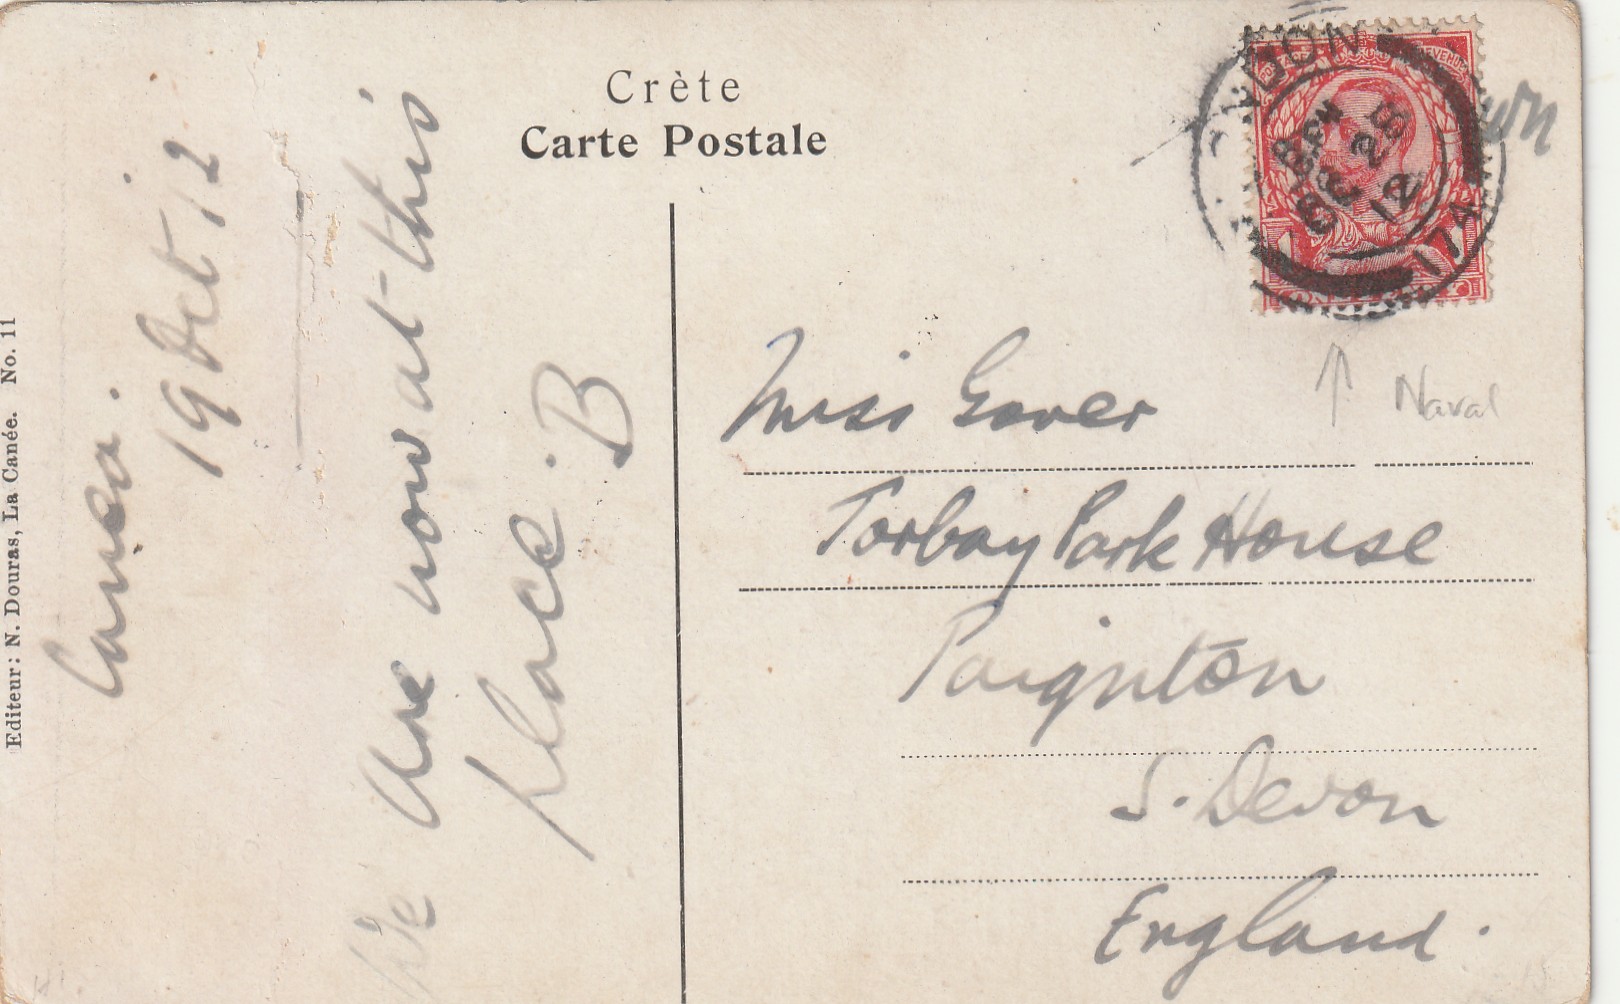 Crète
Carte Postale
Canea.
19 Oct 12
We are now at this
place. B
Editeur: N. Douras, La Canée. No. 11
LONDON
8.15 PM
OC 26
12
17A
Naval
Miss Gover
Torbay Park House
Paignton
S. Devon
England.